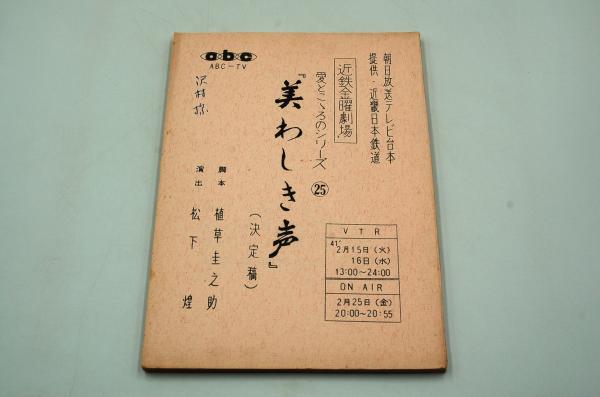 朝日放送テレビ台本
提供・近畿日本鉄道
近鉄金曜劇場
愛とこゝろのシリーズ
㉕
『美わしき声』
(決定稿)
脚本 植草圭之助
演出 松下 煌
abc
ABC-TV
VTR
41' 2月15日(火)
16日(水)
13:00~24:00
ON AIR
2月25日(金)
20:00~20:55